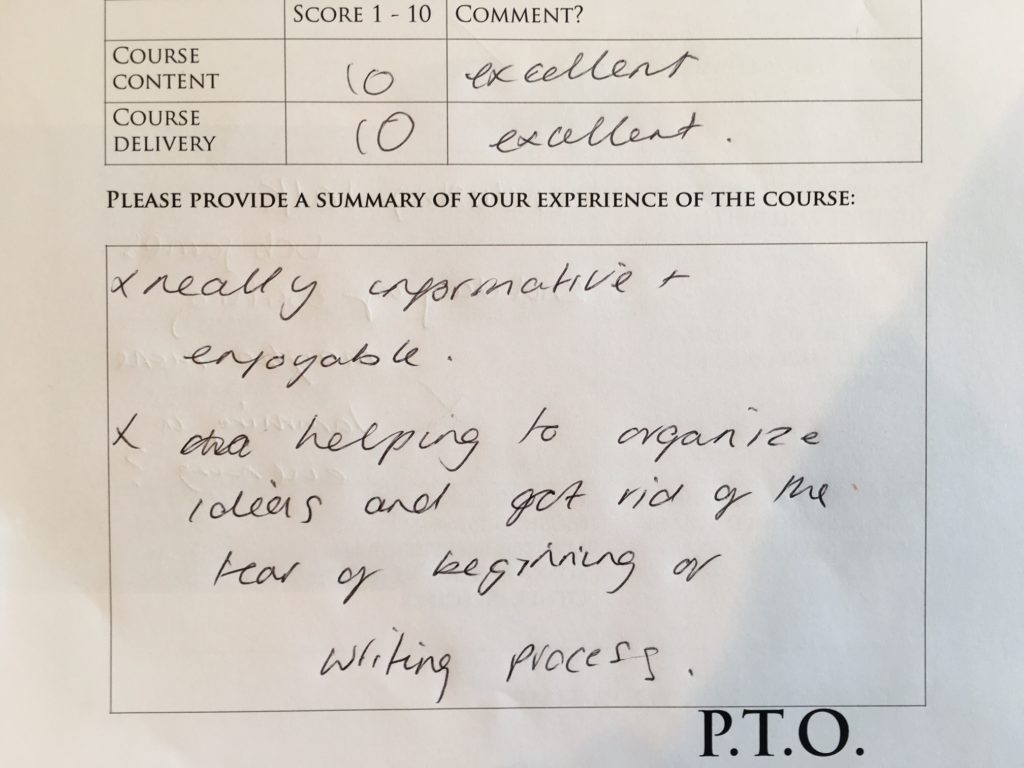 SCORE 1 - 10 COMMENT?
COURSE CONTENT 10 excellent
COURSE DELIVERY 10 excellent.
PLEASE PROVIDE A SUMMARY OF YOUR EXPERIENCE OF THE COURSE:
x really informative +
enjoyable.
x helping to organize
ideas and got rid of the
fear of beginning of
writing process.
P.T.O.